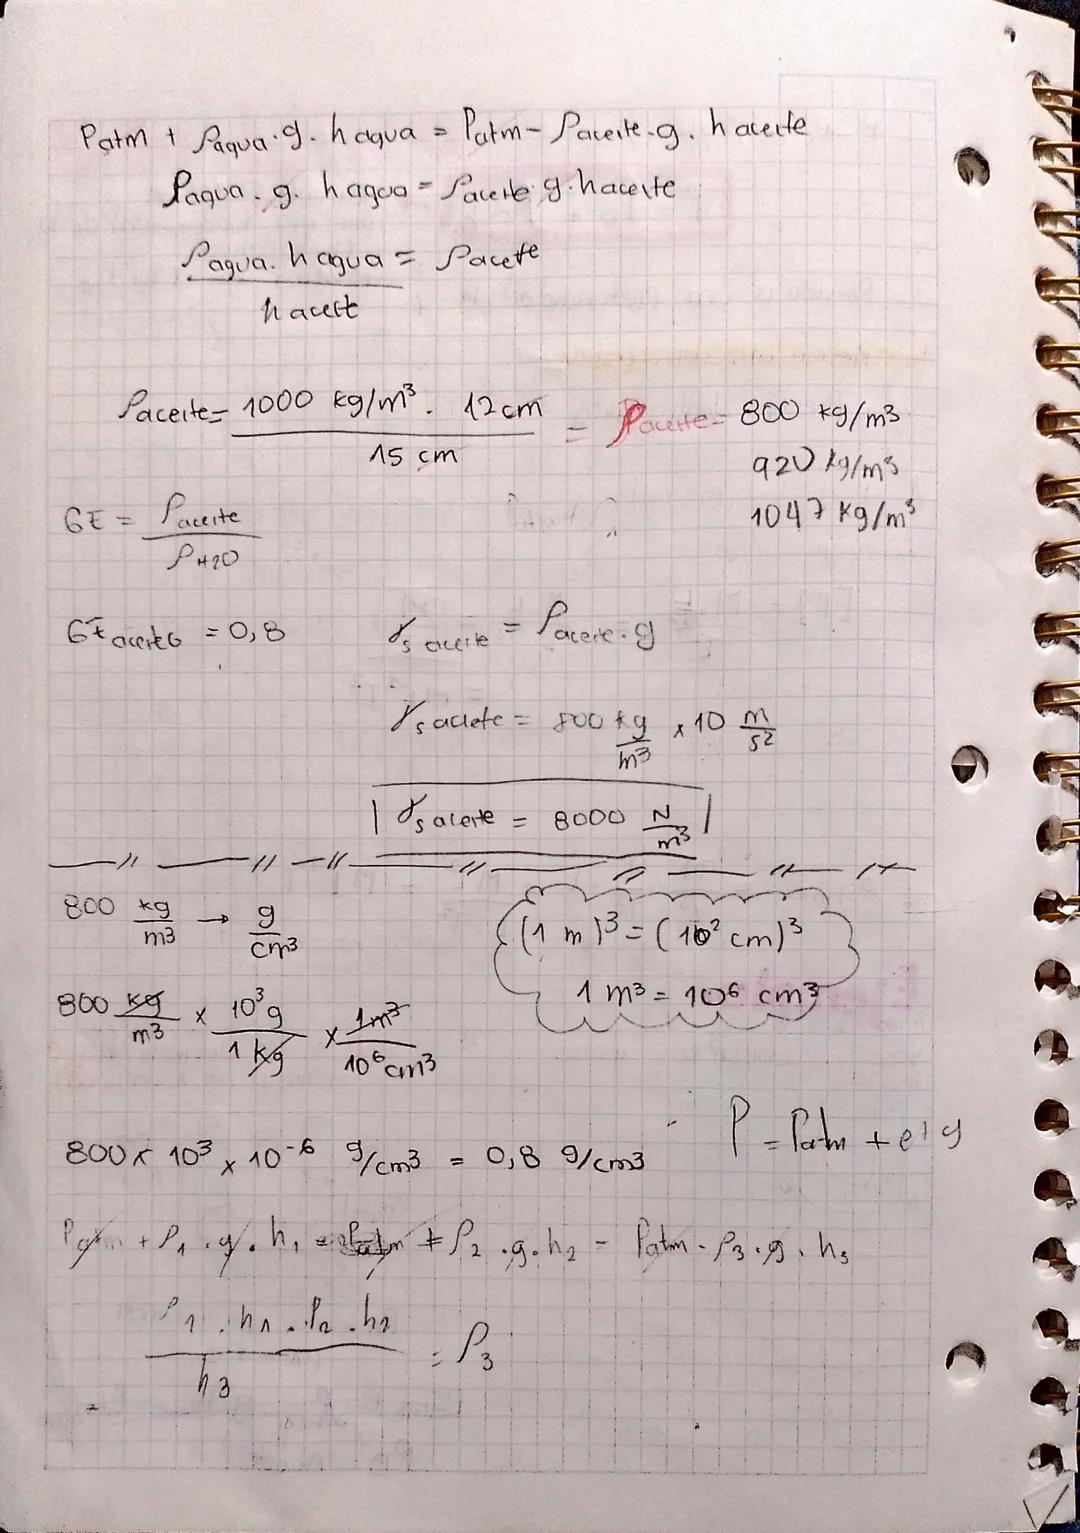 Patm + ρagua.g.hagua = Patm - ρaceite.g.haceite
ρagua.g.hagua = ρaceite.g.haceite
ρagua.hagua = ρaceite
haceit
ρaceite = 1000 kg/m³ . 12cm = ρaceite = 800 kg/m3
15 cm
920 kg/m3
1047 kg/m³
GE = ρaceite
ρH2O
GE aceite = 0,8
γs aceite = ρaceite.g
γs aceite = 800 kg/m3 x 10 m/s2
γs aceite = 8000 N/m3
800 kg/m3 → g/cm3
(1 m)3 = (10² cm)3
1 m3 = 106 cm3
800 kg/m3 x 10³g/1 kg x 1m3/10⁶cm3
P = Patm + ρ
800 x 103 x 10-6 g/cm3 = 0,8 g/cm3
Patm + ρ1.g.h1 = Patm + ρ2.g.h2 = Patm - ρ3.g.h3
ρ1.h1.ρ2.h2 = ρ3
h3